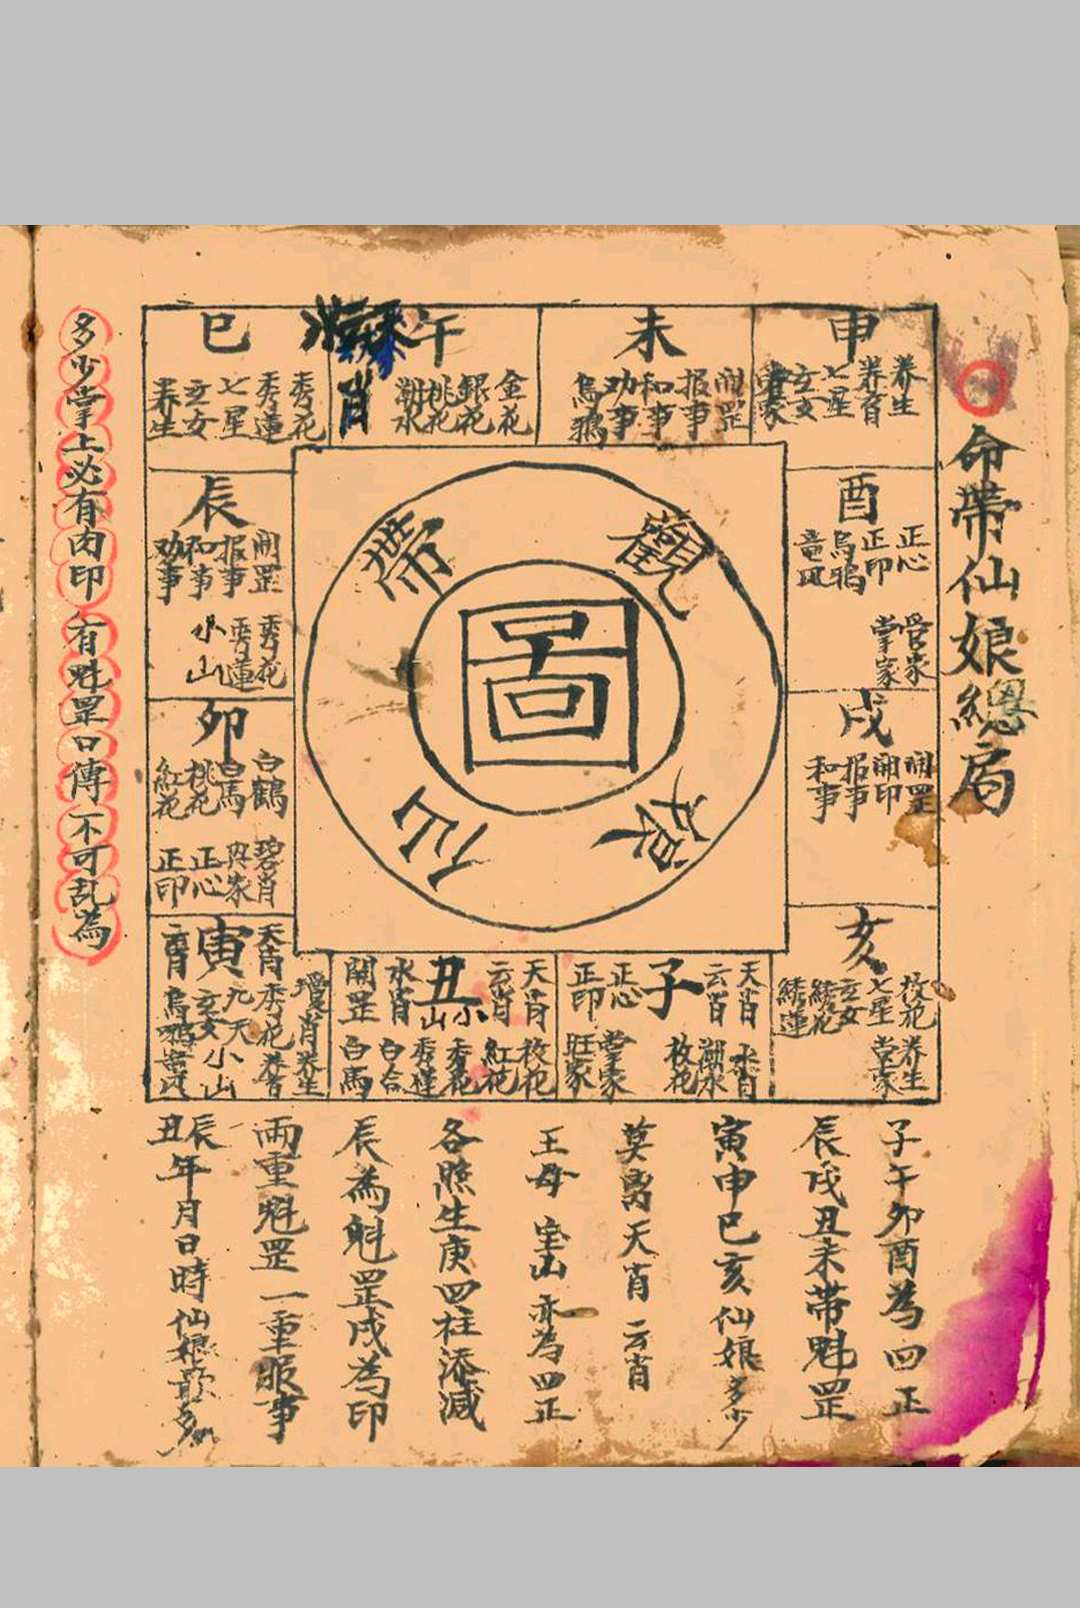 命帶仙娘總局
申
养生
养育
七星
玄女
當家
未
開罡
报事
和事
劝事
烏鴉
午
金花
銀花
桃花
潮水
肖
巳
秀花
秀蓮
七星
玄女
养生
酉
正心
正印
烏鴉
童風
管家
掌家
戌
開罡
開印
报事
和事
亥
枚花
七星
玄女
綉花
綉蓮
养生
當家
子
天肖
云肖
正心
正印
水肖
潮水
枚花
當家
旺家
丑
天肖
云肖
小山
水肖
開罡
枚花
紅花
秀花
秀蓮
白合
白馬
寅
瓊肖
养生
天肖
秀花
养育
九天
小山
玄女
烏鴉
卯
白鶴
白馬
桃花
紅花
碧肖
與家
正心
正印
辰
開罡
报事
和事
劝事
秀花
秀蓮
小山
觀
帶
仙
娘
圖
子午卯酉為四正
辰戌丑未帶魁罡
寅申巳亥仙娘多少
莫离天肖云肖
王母宝山亦為四正
各照生庚四柱添减
辰為魁罡戌為印
兩重魁罡一重服事
辰丑年月日時仙娘最多
多少掌上必有肉印有魁罡口傳不可乱為